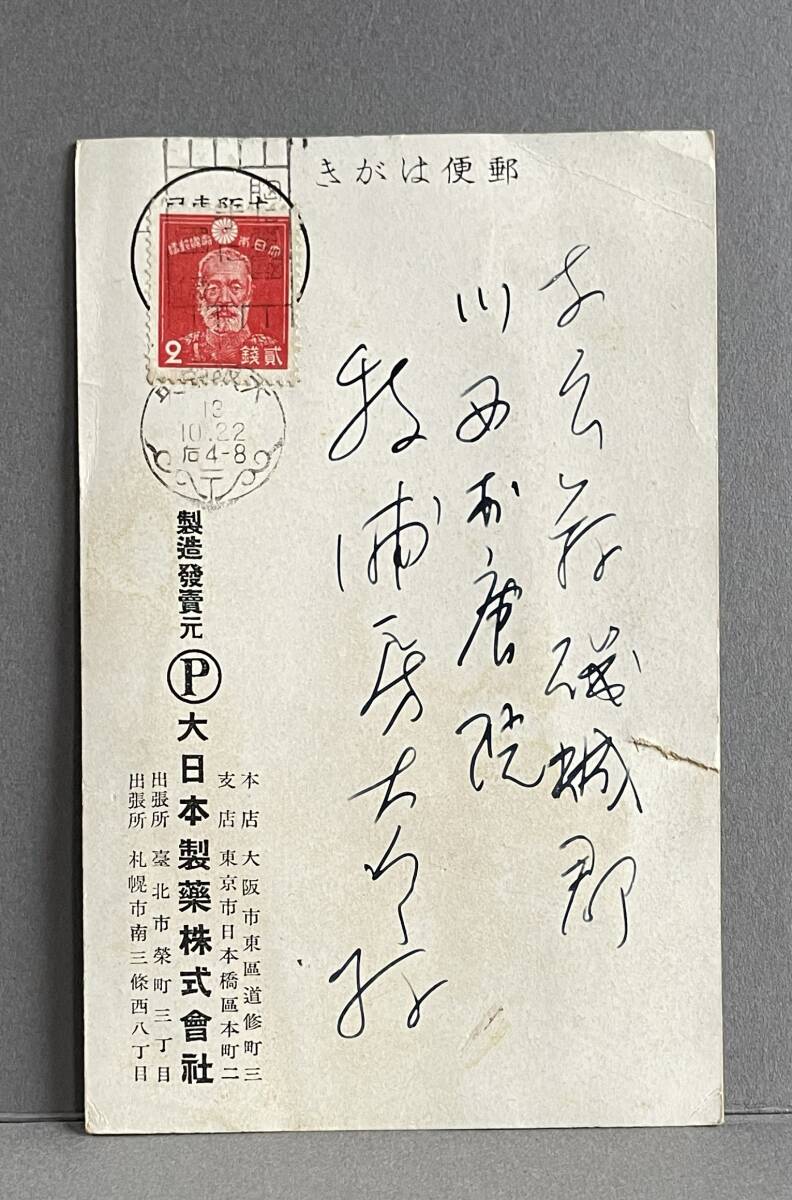 郵便はがき
奈良縣磯城郡
川西村唐院
牧浦房太郎様
大日本帝國郵便
2 貳錢
13
10.22
后4-8
製造發賣元 P 大日本製藥株式會社
本店 大阪市東區道修町三
支店 東京市日本橋區本町二
出張所 臺北市榮町三丁目
出張所 札幌市南三條西八丁目